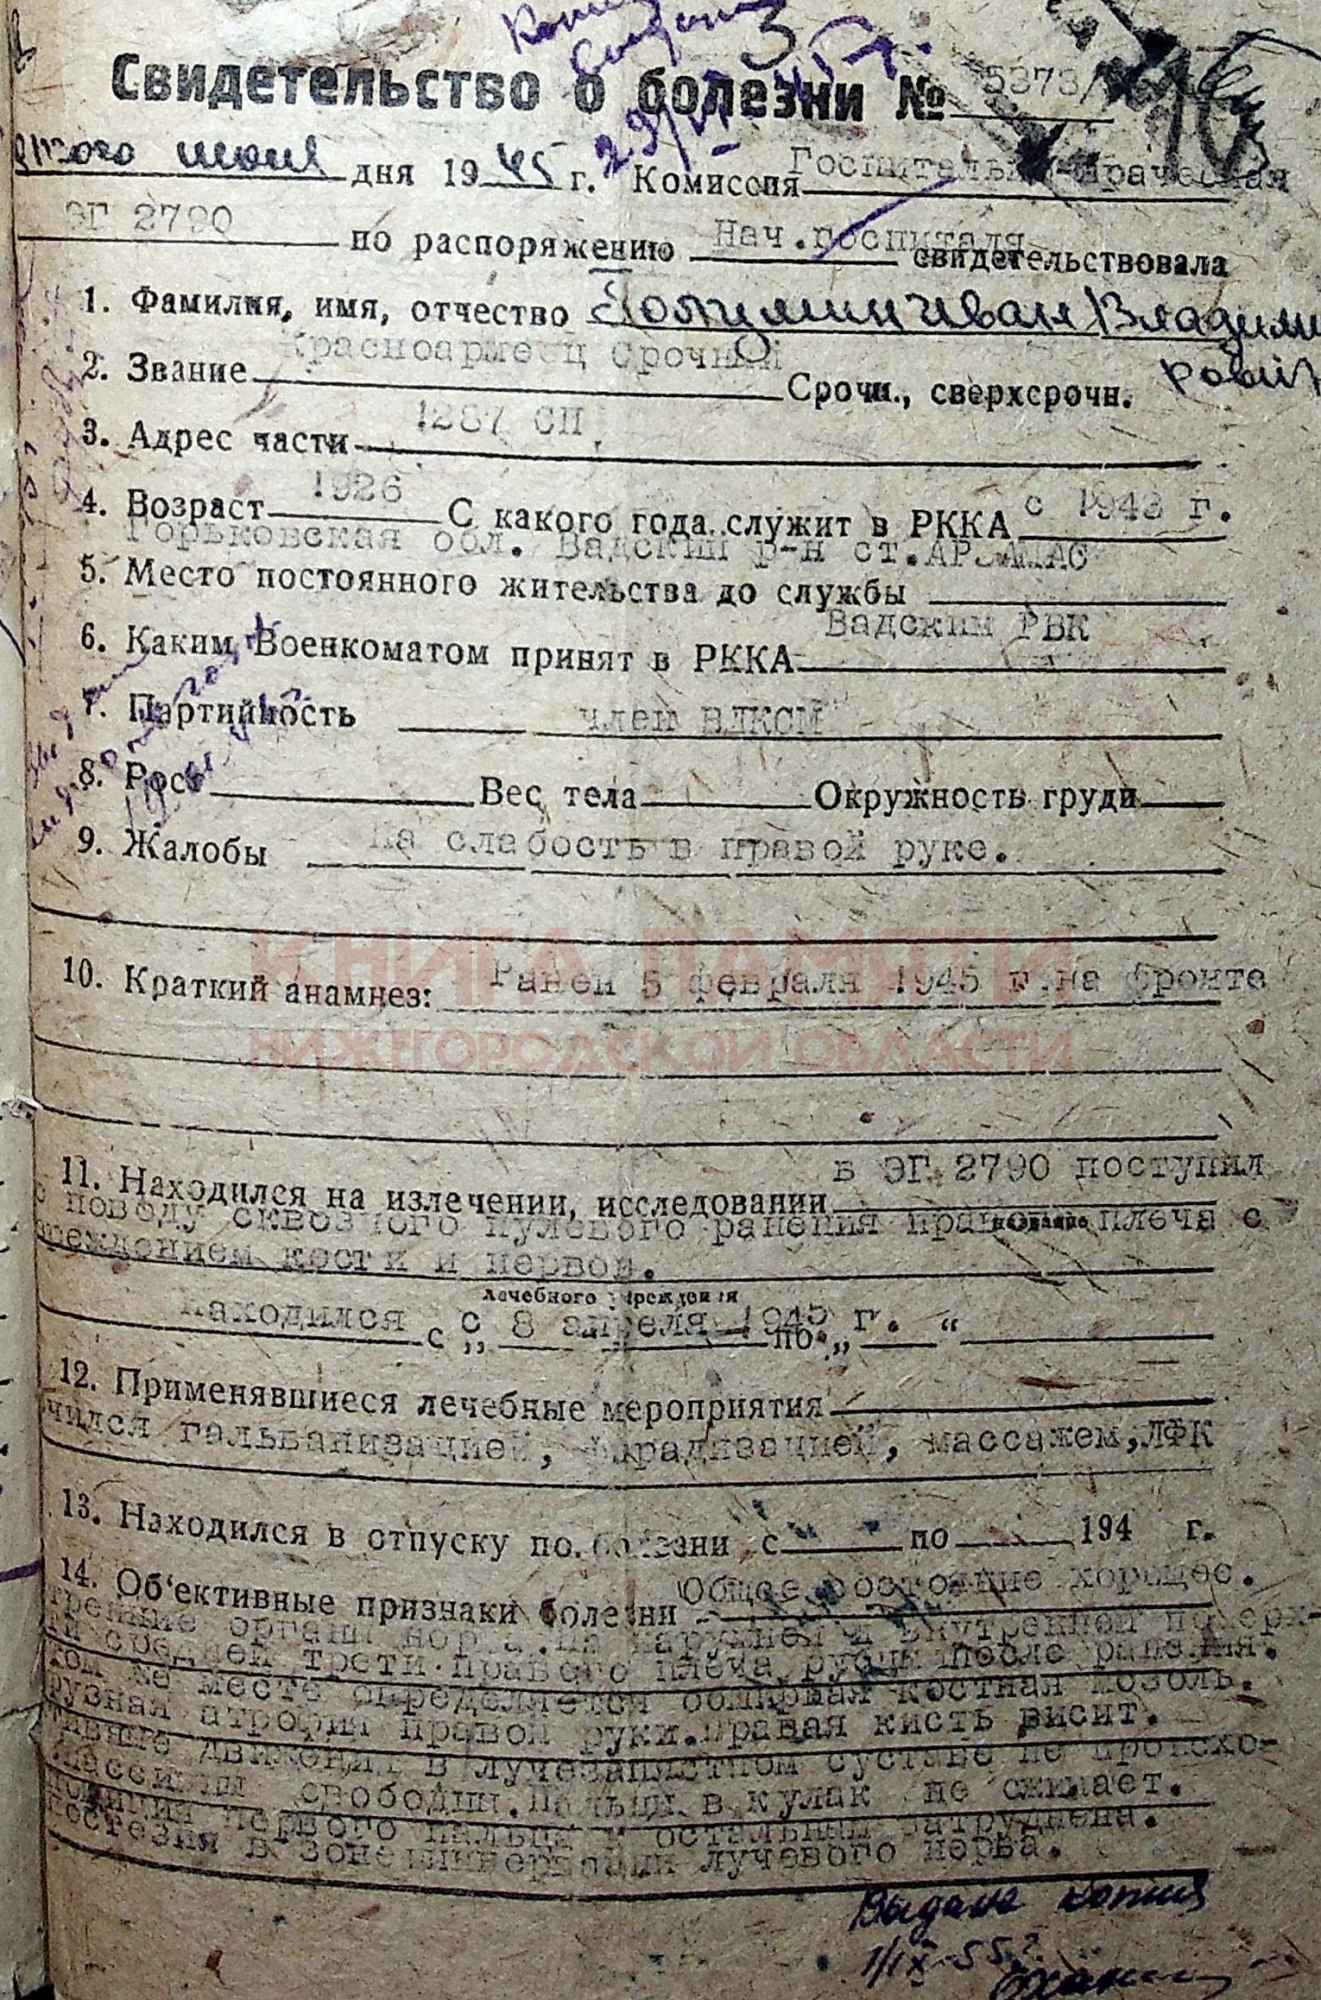 Свидетельство о болезни № 5373/
июня дня 1945 г. Комиссия Госпитально-врачебная
ЭГ 2790 по распоряжению Нач.госпиталя свидетельствовала
1. Фамилия, имя, отчество Иван Владими
рович
2. Звание Красноармеец Срочной Срочн., сверхсрочн.
3. Адрес части 1287 СП.
4. Возраст 1926 С какого года служит в РККА с 1943 г.
Горьковская обл. Вадский р-н ст.АРЗАМАС
5. Место постоянного жительства до службы
6. Каким Военкоматом принят в РККА Вадским РВК
7. Партийность член ВЛКСМ
8. Рост Вес тела Окружность груди
9. Жалобы На слабость в правой руке.
КНИГА ПАМЯТИ
10. Краткий анамнез: Ранен 5 февраля 1945 г.на фронте
НИЖЕГОРОДСКОЙ ОБЛАСТИ
11. Находился на излечении, исследовании в ЭГ 2790 поступил
с поводу сквозного пулевого ранения правого плеча с
название
реждением кости и нервов.
лечебного учреждения
находился с „ с 8 апреля 1945 г. по „ “
12. Применявшиеся лечебные мероприятия
чился гальванизацией, фарадизацией, массажем,ЛФК
13. Находился в отпуску по болезни с по 194 г.
14. Об'ективные признаки болезни - Общее состояние хорошее.
тренние органы норма.На наружной и внутренней поверх-
ти средней трети правого плеча рубцы после ранения.
ком же месте определяется обширная костная мозоль.
рузная атрофия правой руки.Правая кисть висит.
тивные движения в лучезапястном суставе не происхо-
Пассивные свободны.Пальцы в кулак не сжимает.
позиция первого пальца к остальным затруднена.
постезия в зоне иннервации лучевого нерва.
Выдана копия
1/IX-55г.